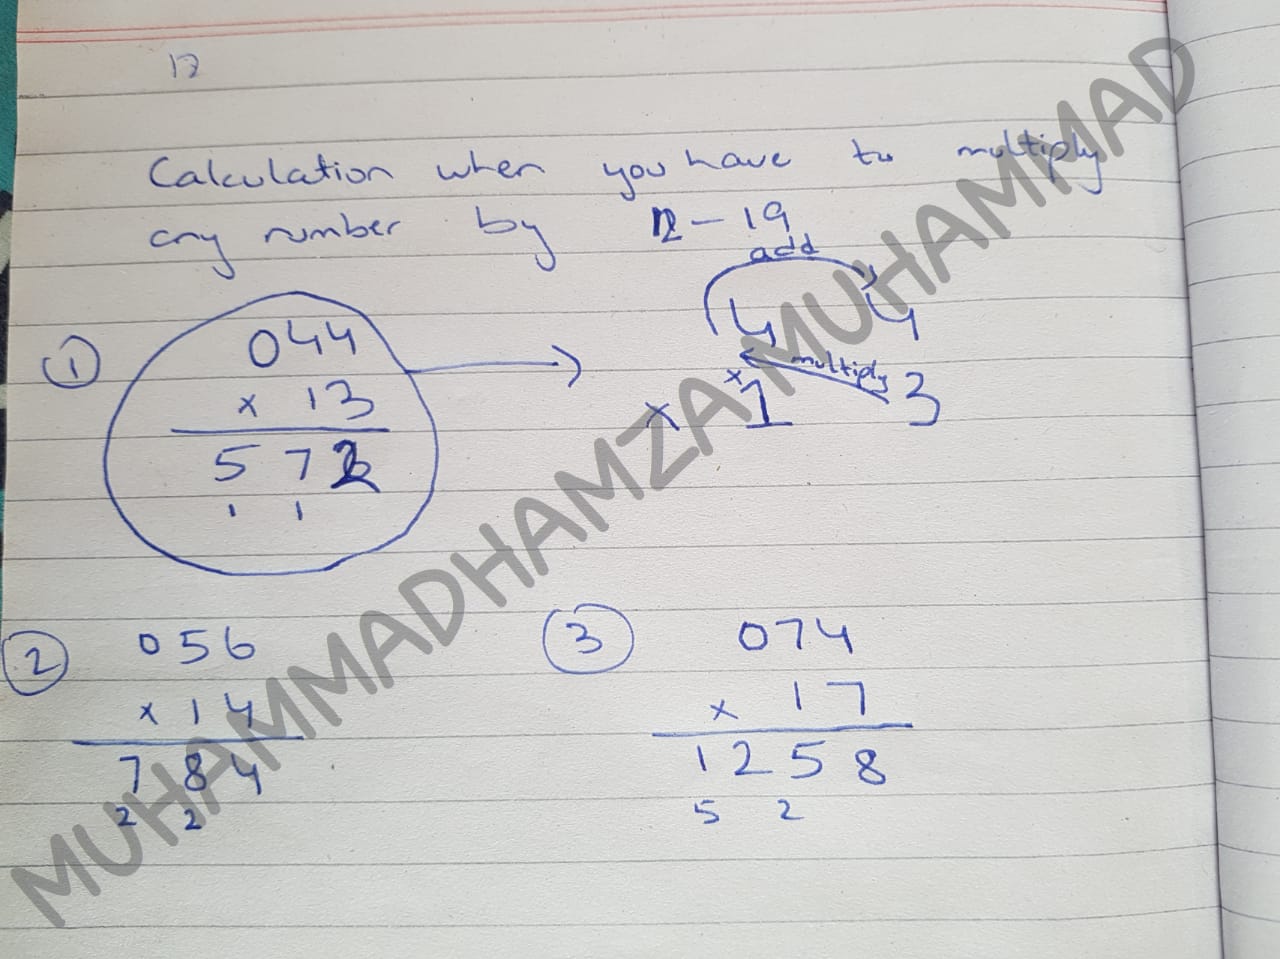 17
Calculation when you have to multiply
any number by 12 - 19
add
① 044
× 13
572
1 1
4 4
multiply
×
× 1 3
② 056
× 14
784
2 2
③ 074
× 17
1258
5 2
MUHAMMADHAMZAMUHAMMAD